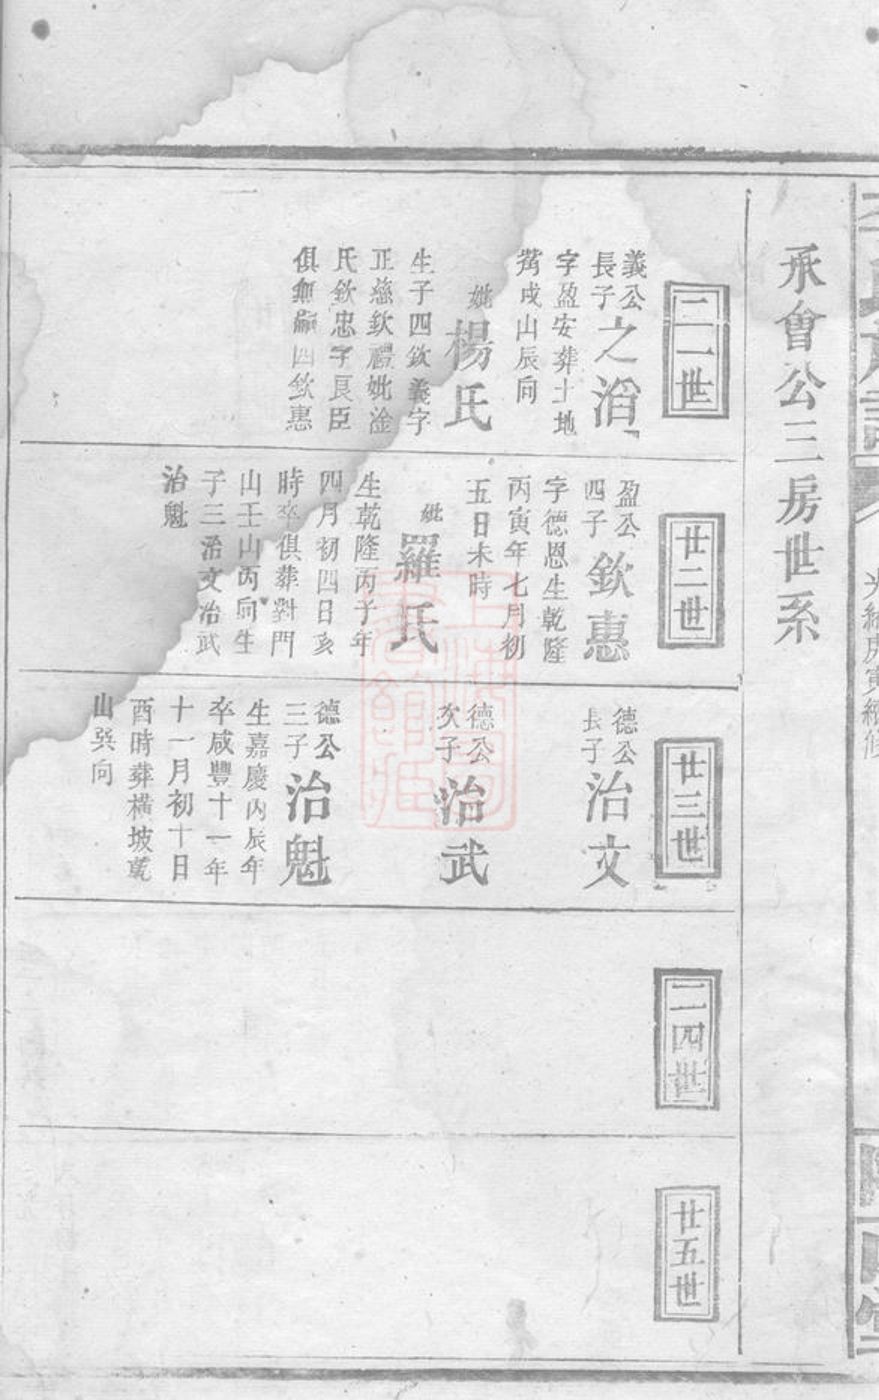 承會公三房世系
二一世
義公
長子
之滔
字盈安葬土地
戌山辰向
妣
楊氏
生子四欽義字
正慈欽禮妣淦
氏欽忠字良臣
俱無嗣四欽惠
廿二世
盈公
四子
欽惠
字德恩生乾隆
丙寅年七月初
五日未時
妣
羅氏
生乾隆丙子年
四月初四日亥
時卒俱葬對門
山壬山丙向生
子三治文治武
治魁
廿三世
德公
長子
治文
德公
次子
治武
德公
三子
治魁
生嘉慶丙辰年
卒咸豐十一年
十一月初十日
酉時葬橫坡乾
山巽向
二四世
廿五世